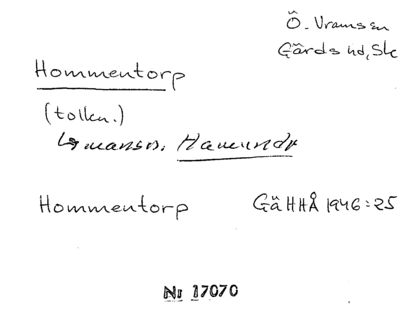 Ö. Vramssn
Gärds hd, Sk
Hommentorp
(tolkn.)
↳ mansn. Hamundr
Hommentorp GäHHÅ 1946:25
Nr 17070